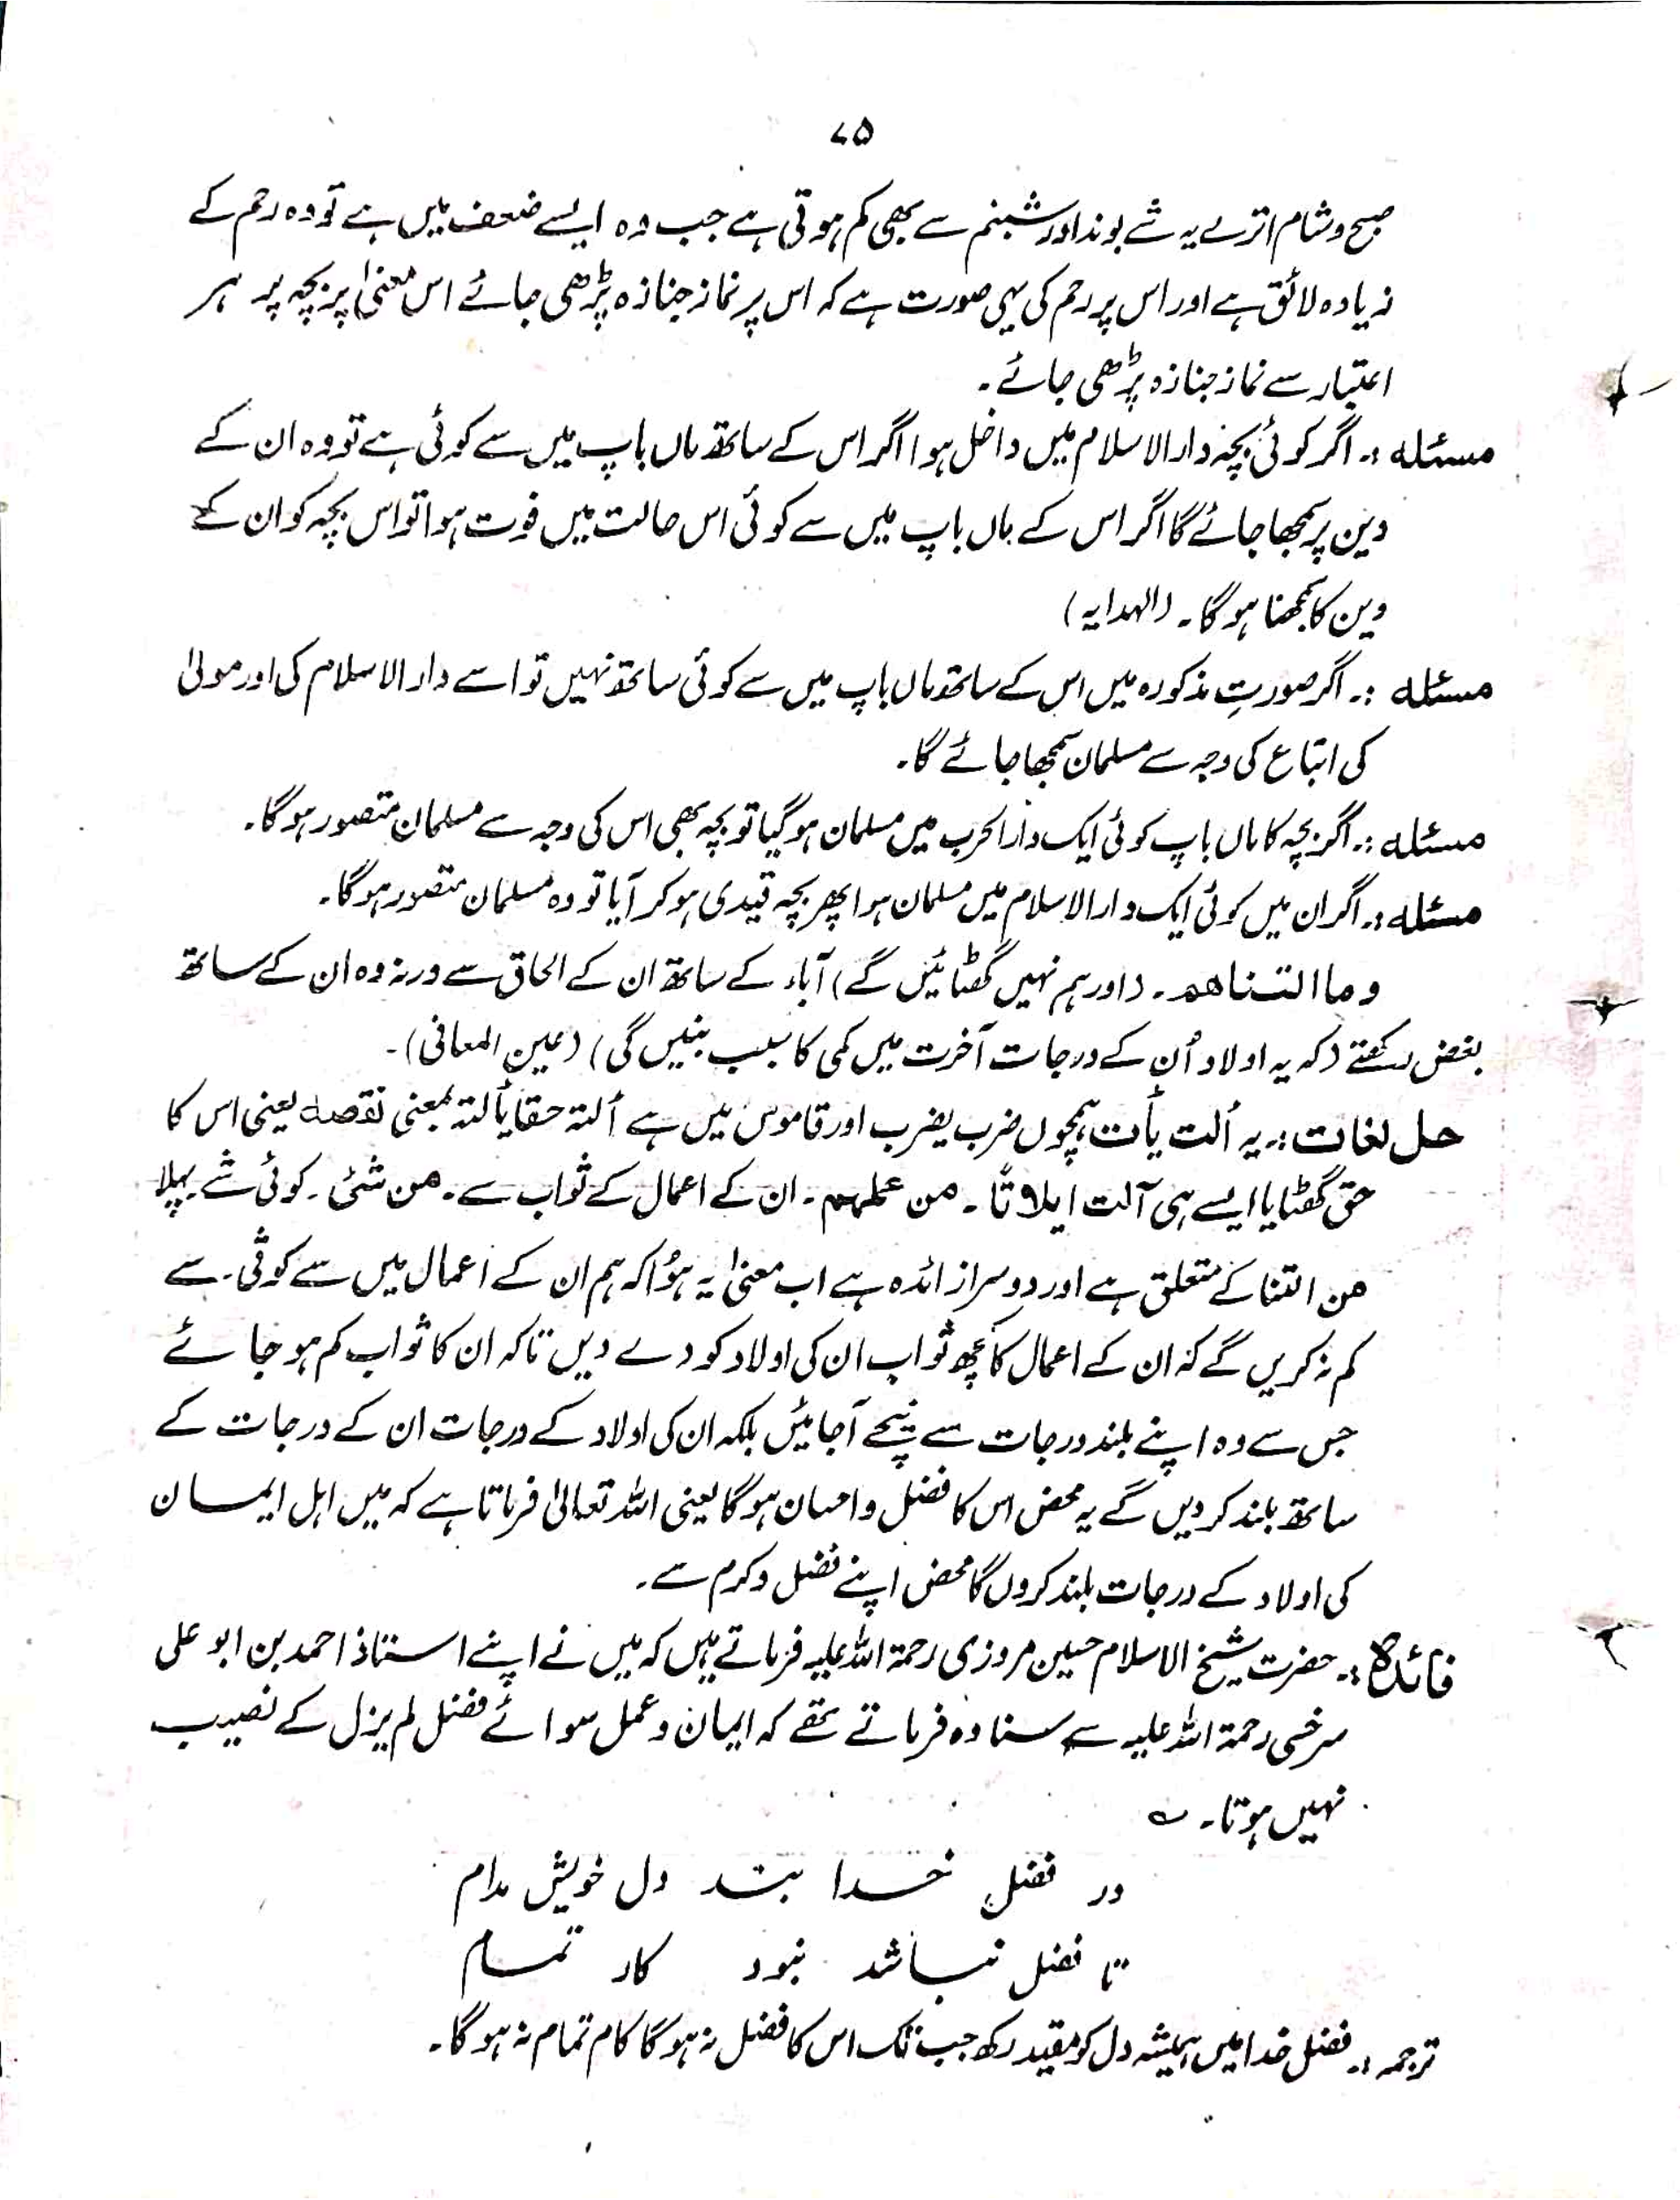 ۷۵
صبح و شام اترے یہ شے بوند اور شبنم سے بھی کم ہوتی ہے جب وہ ایسے ضعف میں ہے تو وہ رحم کے
زیادہ لائق ہے اور اس پر رحم کی یہی صورت ہے کہ اس پر نماز جنازہ پڑھی جائے اس معنیٰ پر بچہ پر ہر
اعتبار سے نماز جنازہ پڑھی جائے۔
مسئلہ :۔ اگر کوئی بچہ دار الاسلام میں داخل ہوا اگر اس کے ساتھ ماں باپ میں سے کوئی ہے تو وہ ان کے
دین پر سمجھا جائے گا اگر اس کے ماں باپ میں سے کوئی اس حالت میں فوت ہوا تو اس بچہ کو ان کے
دین کا سمجھنا ہوگا۔ (الہدایہ)
مسئلہ :۔ اگر صورتِ مذکورہ میں اس کے ساتھ ماں باپ میں سے کوئی ساتھ نہیں تو اسے دار الاسلام کی اور مولیٰ
کی اتباع کی وجہ سے مسلمان سمجھا جائے گا۔
مسئلہ :۔ اگر بچہ کا ماں باپ کوئی ایک دار الحرب میں مسلمان ہو گیا تو بچہ بھی اس کی وجہ سے مسلمان متصور ہوگا۔
مسئلہ :۔ اگر ان میں کوئی ایک دار الاسلام میں مسلمان ہوا پھر بچہ قیدی ہو کر آیا تو وہ مسلمان متصور ہوگا۔
وما التناهم۔ (اور ہم نہیں گھٹائیں گے) آباء کے ساتھ ان کے الحاق سے ورنہ وہ ان کے ساتھ
بغض رکھتے (کہ یہ اولاد اُن کے درجات آخرت میں کمی کا سبب بنیں گی) (عین المعانی)۔
حل لغات :۔ یہ ألت یألت ہمچوں ضرب یضرب اور قاموس میں ہے ألتہ حقا یألتہ بمعنی نقصہ یعنی اس کا
حق گھٹایا ایسے ہی آلت ایلاتًا۔ من عملہم۔ ان کے اعمال کے ثواب سے۔ من شئ۔ کوئی شے پہلا
من التنا کے متعلق ہے اور دوسرا زائدہ ہے اب معنیٰ یہ ہوا کہ ہم ان کے اعمال میں سے کوئی۔ سے
کم نہ کریں گے کہ ان کے اعمال کا کچھ ثواب ان کی اولاد کو دے دیں تاکہ ان کا ثواب کم ہو جائے
جس سے وہ اپنے بلند درجات سے نیچے آجائیں بلکہ ان کی اولاد کے درجات ان کے درجات کے
ساتھ بلند کر دیں گے یہ محض اس کا فضل و احسان ہوگا یعنی اللہ تعالیٰ فرماتا ہے کہ میں اہل ایمان
کی اولاد کے درجات بلند کروں گا محض اپنے فضل و کرم سے۔
فائدہ :۔ حضرت شیخ الاسلام حسین مروزی رحمۃ اللہ علیہ فرماتے ہیں کہ میں نے اپنے استاذ احمد بن ابو علی
سرخسی رحمۃ اللہ علیہ سے سنا وہ فرماتے تھے کہ ایمان و عمل سوائے فضل لم یزل کے نصیب
نہیں ہوتا۔ ؎
در فضل خدا بند دل خویش مدام
تا فضل نباشد نبود کار تمام
ترجمہ :۔ فضل خدا میں ہمیشہ دل کو مقید رکھ جب تک اس کا فضل نہ ہوگا کام تمام نہ ہوگا۔